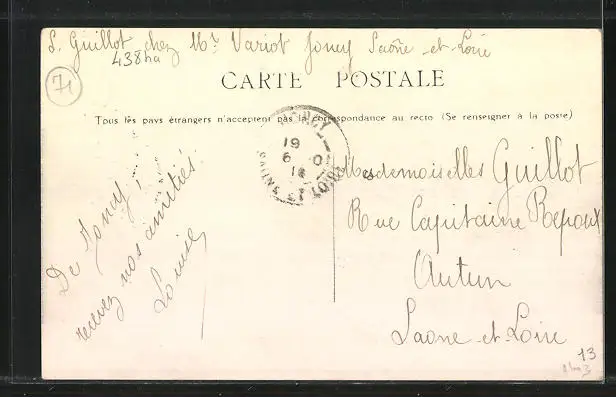 L. Guillot chez Mr Variot Joncy Saône-et-Loire
438ha
71
CARTE POSTALE
Tous les pays étrangers n'acceptent pas la correspondance au recto (Se renseigner à la poste)
JONCY
19
6 01
16
SAONE ET LOIRE
Mesdemoiselles Guillot
Rue Capitaine Repoux
Autun
Saone-et-Loire
De Joncy,
recevez nos amitiés.
Louise
13